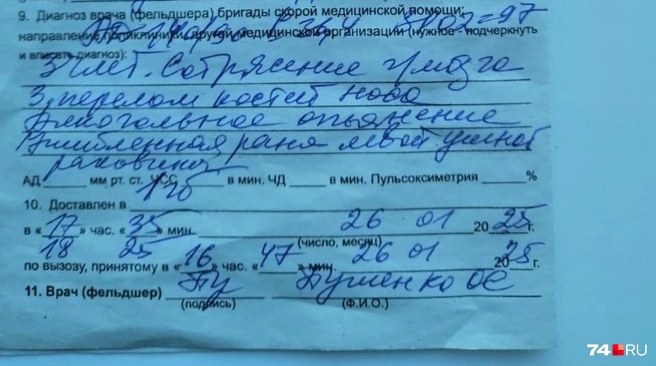 9. Диагноз врача (фельдшера) бригады скорой медицинской помощи;
направление поликлиники, другой медицинской организации (нужное - подчеркнуть
и вписать диагноз): SpO2=97
ЗЧМТ. Сотрясение г/мозга
З. перелом костей носа
Алкогольное опьянение
Ушибленная рана левой ушной
раковины
АД мм рт. ст. ЧСС в мин. ЧД в мин. Пульсоксиметрия %
10. Доставлен в
в «17» час. «35» мин. 26 01 2025г.
(число, месяц)
18 25
по вызову, принятому в «16» час. «47» мин. 26 01 2025г.
11. Врач (фельдшер)
(подпись) (Ф.И.О.)
74.RU